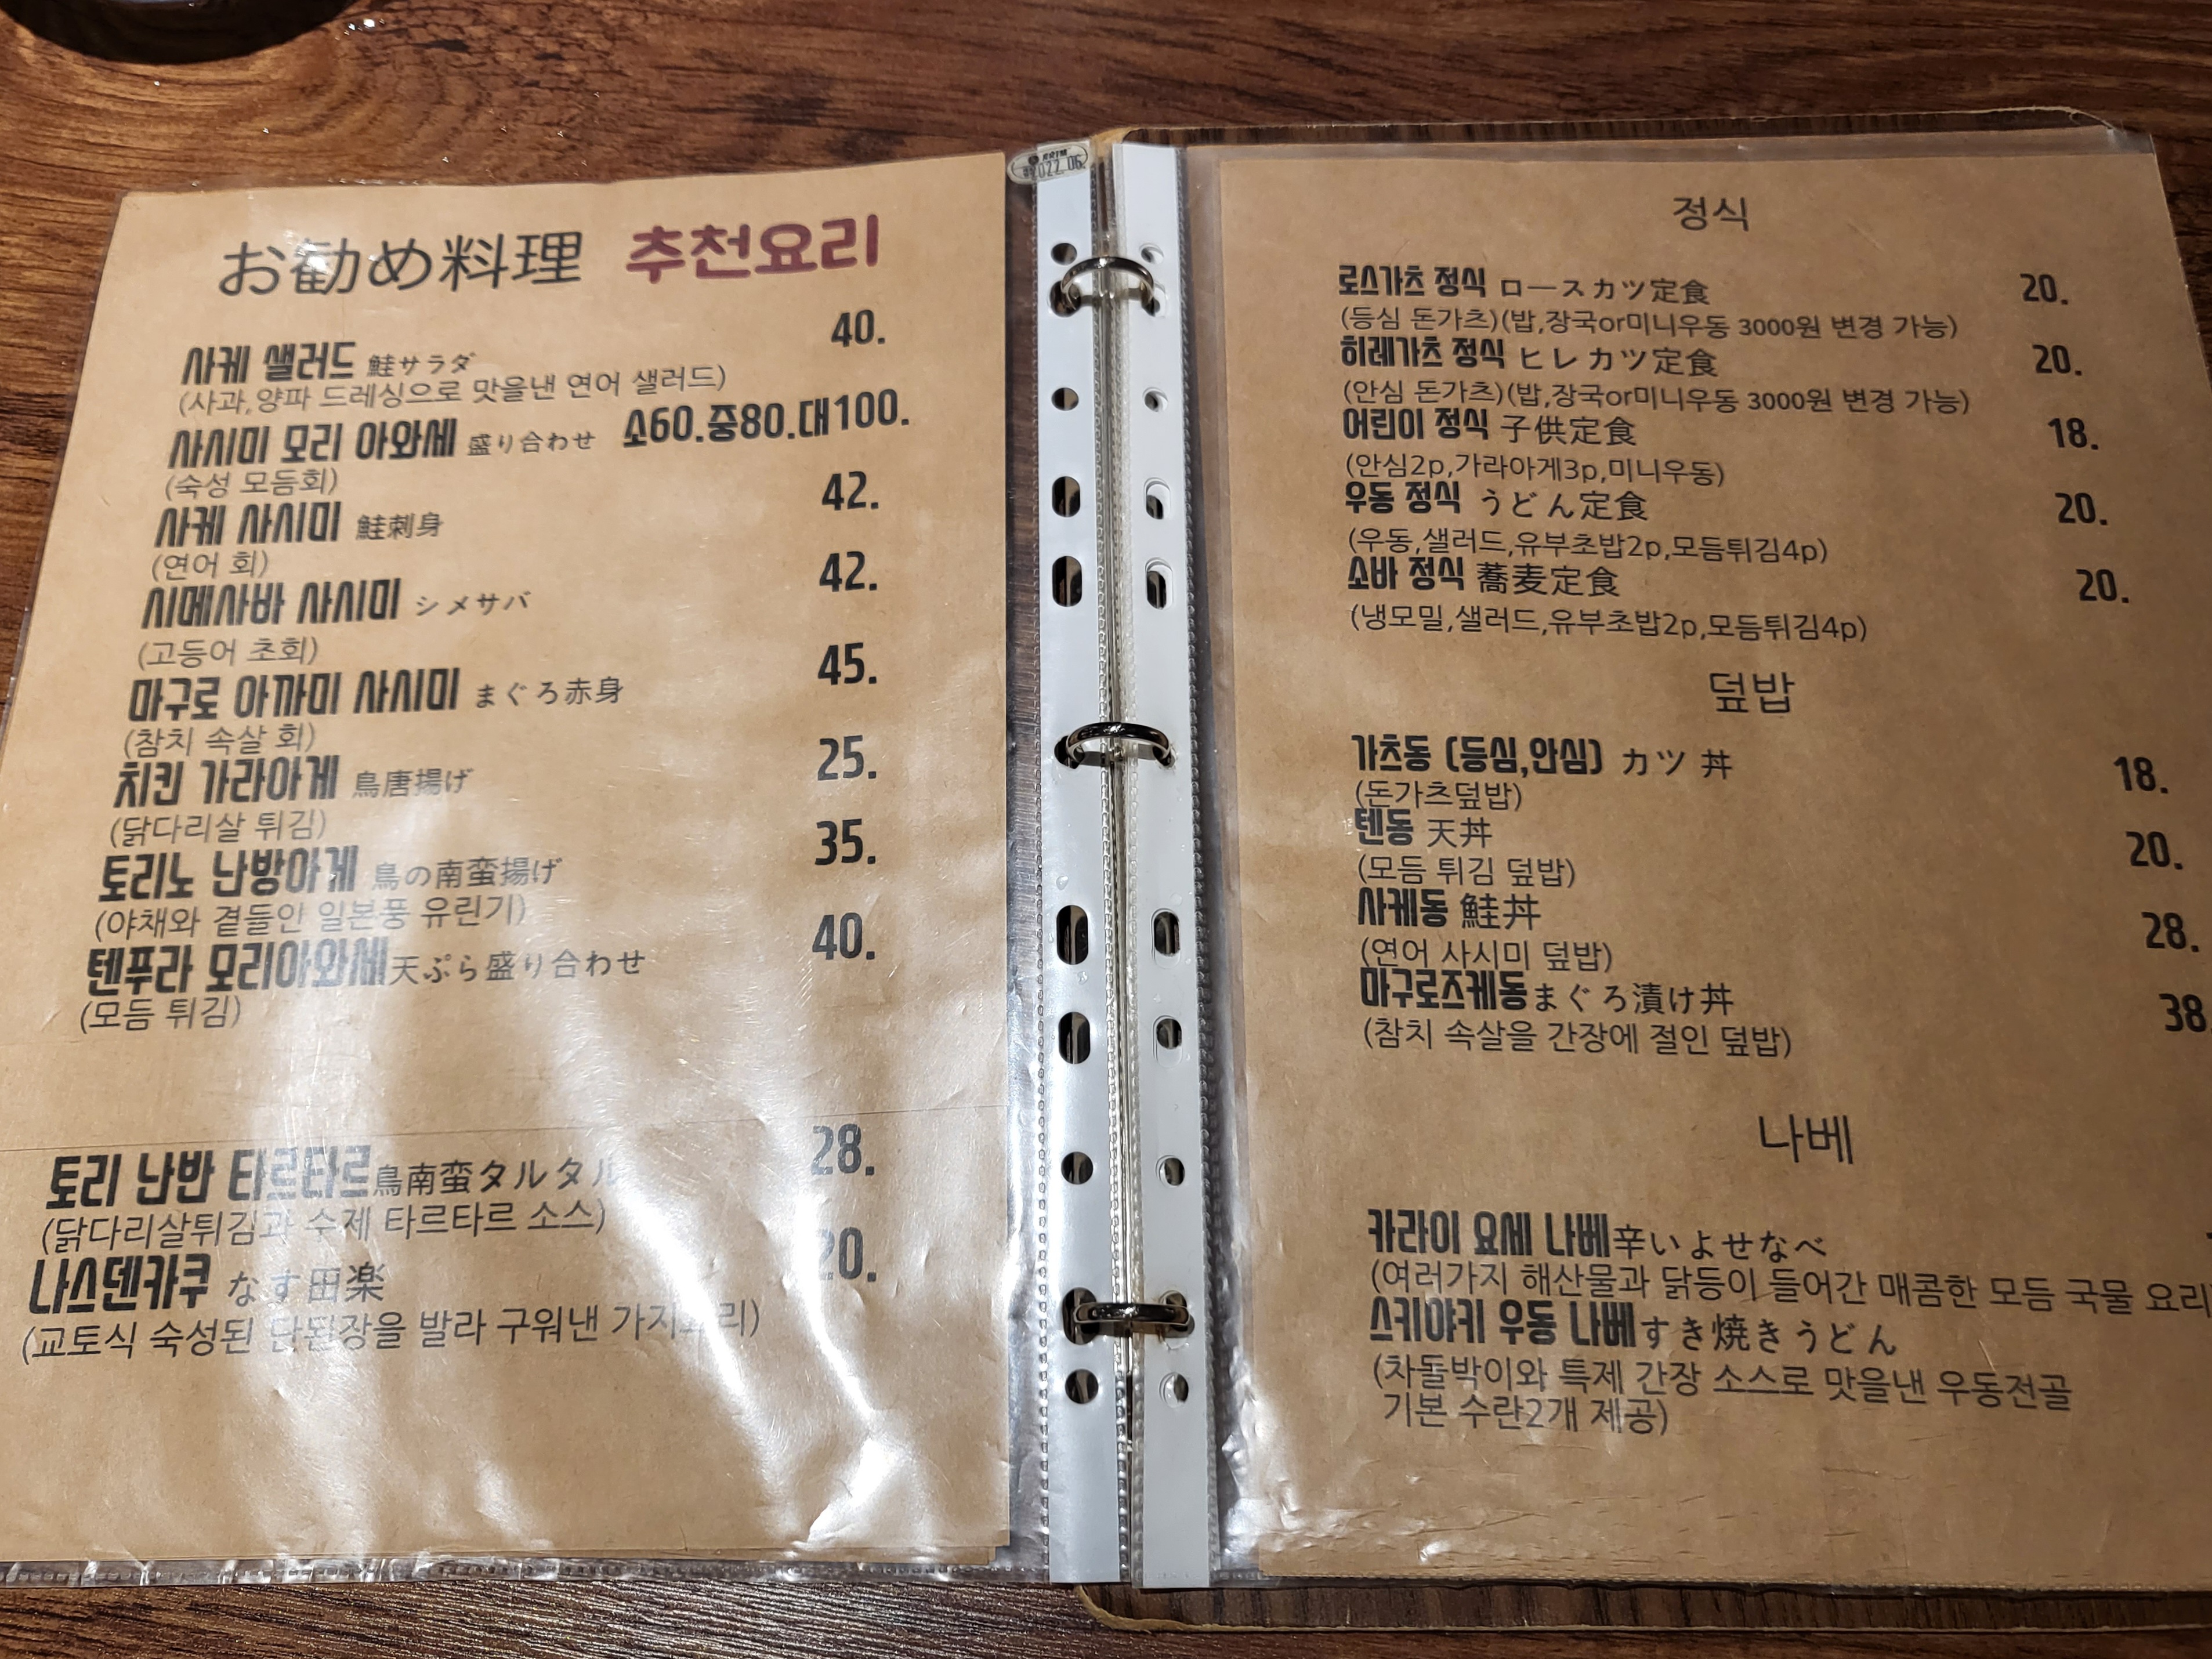 お勧め料理 추천요리
사케 샐러드 鮭サラダ 40.
(사과,양파 드레싱으로 맛을낸 연어 샐러드)
사시미 모리 아와세 盛り合わせ 소60.중80.대100.
(숙성 모듬회)
사케 사시미 鮭刺身 42.
(연어 회)
시메사바 사시미 シメサバ 42.
(고등어 초회)
마구로 아까미 사시미 まぐろ赤身 45.
(참치 속살 회)
치킨 가라아게 鳥唐揚げ 25.
(닭다리살 튀김)
토리노 난방아게 鳥の南蛮揚げ 35.
(야채와 곁들안 일본풍 유린기)
텐푸라 모리아와세天ぷら盛り合わせ 40.
(모듬 튀김)
토리 난반 타르타르鳥南蛮タルタル 28.
(닭다리살튀김과 수제 타르타르 소스)
나스덴카쿠 なす田楽 20.
(교토식 숙성된 단된장을 발라 구워낸
2022.06.
정식
로스가츠 정식 ロースカツ定食 20.
(등심 돈가츠)(밥,장국or미니우동 3000원 변경 가능)
히레가츠 정식 ヒレカツ定食 20.
(안심 돈가츠)(밥,장국or미니우동 3000원 변경 가능)
어린이 정식 子供定食 18.
(안심2p,가라아게3p,미니우동)
우동 정식 うどん定食 20.
(우동,샐러드,유부초밥2p,모듬튀김4p)
소바 정식 蕎麦定食 20.
(냉모밀,샐러드,유부초밥2p,모듬튀김4p)
덮밥
가츠동 (등심,안심) カツ 丼 18.
(돈가츠덮밥)
텐동 天丼 20.
(모듬 튀김 덮밥)
사케동 鮭丼 28.
(연어 사시미 덮밥)
마구로즈케동まぐろ漬け丼 38
(참치 속살을 간장에 절인 덮밥)
나베
카라이 요세 나베辛いよせなべ
(여러가지 해산물과 닭등이 들어간 매콤한 모듬 국물 요리
스키야키 우동 나베すき焼きうどん
(차돌박이와 특제 간장 소스로 맛을낸 우동전골
기본 수란2개 제공)